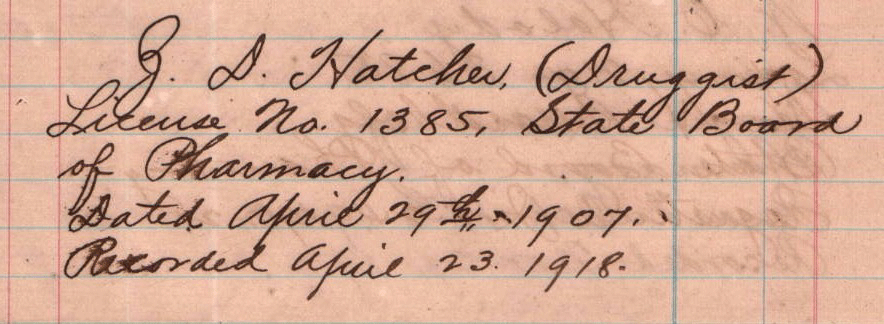 Z. D. Hatcher, (Druggist)
License No. 1385, State Board
of Pharmacy.
Dated April 29th, 1907.
Recorded April 23. 1918.